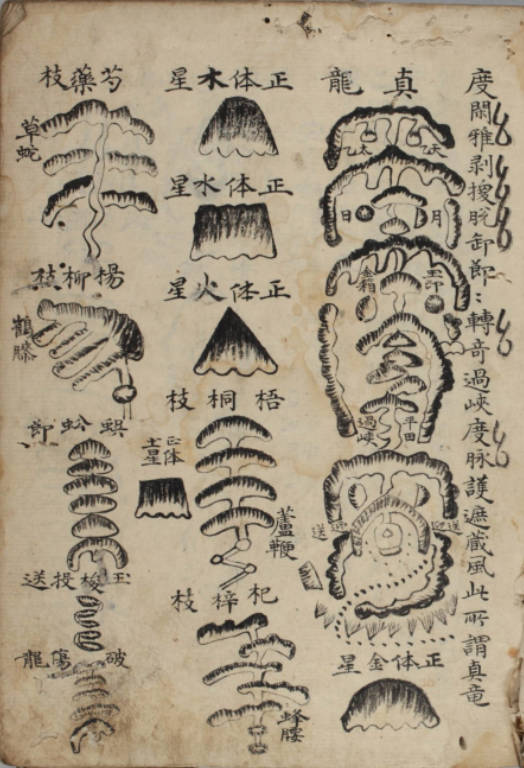 度閑雅剥換脫卸節〻轉奇過峽度脉護遮藏風此所謂真竜
真龍
天乙
太乙
月
日
玉印
金箱
平田
過峽
送迎
迎送
正体金星
正体木星
正体水星
正体火星
梧桐枝
正体土星
蘆鞭
杞梓枝
蜂腰
芍藥枝
草蛇
楊柳枝
鶴膝
蜈蚣節
玉梭投送
破傷龍